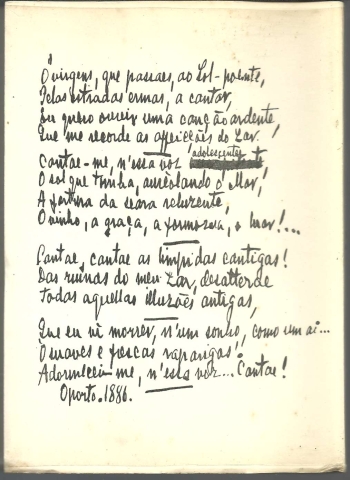 Ó virgens, que passaes, ao Sol-poente,
Pelas estradas ermas, a cantar,
Eu quero ouvir uma canção ardente
Que me recorde as affeições do Lar.
Cantae-me, n'essa voz adolescente
O sol que tomba, aureolando o Mar,
A fartura da seara reluzente,
O vinho, a graça, a formosura, o luar!...
Cantae, cantae as limpidas cantigas!
Das ruinas do meu Lar, desatterde
Todas aquellas illuzões antigas,
Que eu vi morrer, n'um sonho, como um ai...
Ó suaves e frescas raparigas!
Adormecei-me, n'essa voz... Cantae!
Oporto. 1886.